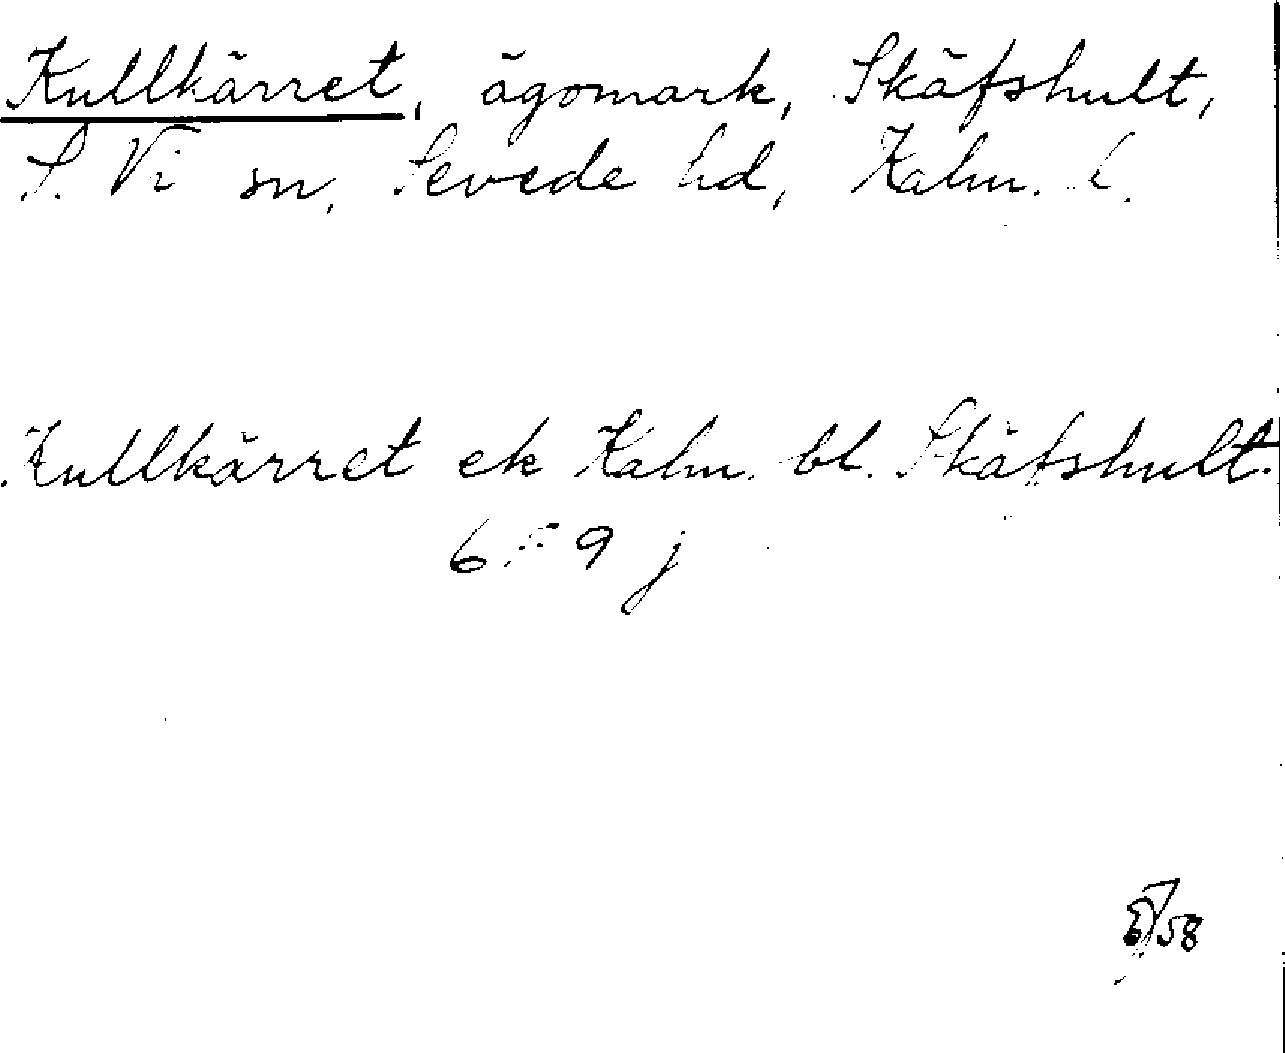 Kullkärret, ägomark, Skäfshult,
S. Vi sn, Sevede hd, Kalm. l.
Kullkärret ek Kalm. bl. Skäfshult.
6 F 9 j
58